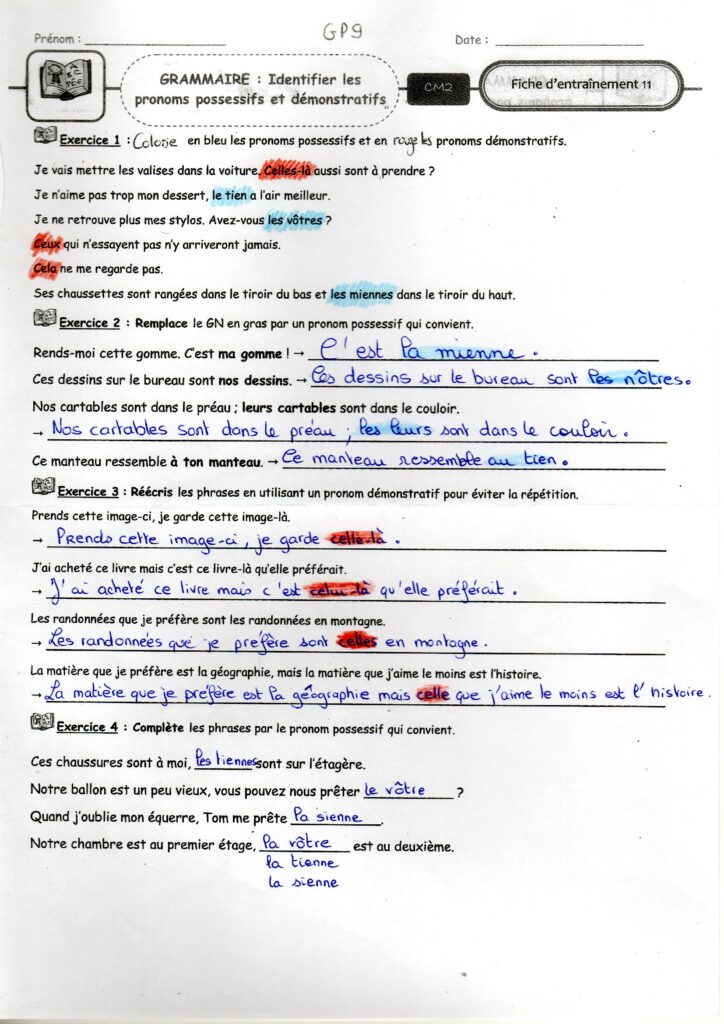 GP9
Prénom : Date :
GRAMMAIRE : Identifier les
pronoms possessifs et démonstratifs
CM2
Fiche d'entraînement 11
Exercice 1 : Colorie en bleu les pronoms possessifs et en rouge les pronoms démonstratifs.
Je vais mettre les valises dans la voiture. Celles-là aussi sont à prendre ?
Je n'aime pas trop mon dessert, le tien a l'air meilleur.
Je ne retrouve plus mes stylos. Avez-vous les vôtres ?
Ceux qui n'essayent pas n'y arriveront jamais.
Cela ne me regarde pas.
Ses chaussettes sont rangées dans le tiroir du bas et les miennes dans le tiroir du haut.
Exercice 2 : Remplace le GN en gras par un pronom possessif qui convient.
Rends-moi cette gomme. C'est ma gomme ! → C'est la mienne.
Ces dessins sur le bureau sont nos dessins. → Ces dessins sur le bureau sont les nôtres.
Nos cartables sont dans le préau ; leurs cartables sont dans le couloir.
→ Nos cartables sont dans le préau ; les leurs sont dans le couloir.
Ce manteau ressemble à ton manteau. → Ce manteau ressemble au tien.
Exercice 3 : Réécris les phrases en utilisant un pronom démonstratif pour éviter la répétition.
Prends cette image-ci, je garde cette image-là.
→ Prends cette image-ci, je garde celle-là.
J'ai acheté ce livre mais c'est ce livre-là qu'elle préférait.
→ J'ai acheté ce livre mais c'est celui-là qu'elle préférait.
Les randonnées que je préfère sont les randonnées en montagne.
→ Les randonnées que je préfère sont celles en montagne.
La matière que je préfère est la géographie, mais la matière que j'aime le moins est l'histoire.
→ La matière que je préfère est la géographie mais celle que j'aime le moins est l'histoire.
Exercice 4 : Complète les phrases par le pronom possessif qui convient.
Ces chaussures sont à moi, les tiennes sont sur l'étagère.
Notre ballon est un peu vieux, vous pouvez nous prêter le vôtre ?
Quand j'oublie mon équerre, Tom me prête la sienne.
Notre chambre est au premier étage, la vôtre est au deuxième.
la tienne
la sienne